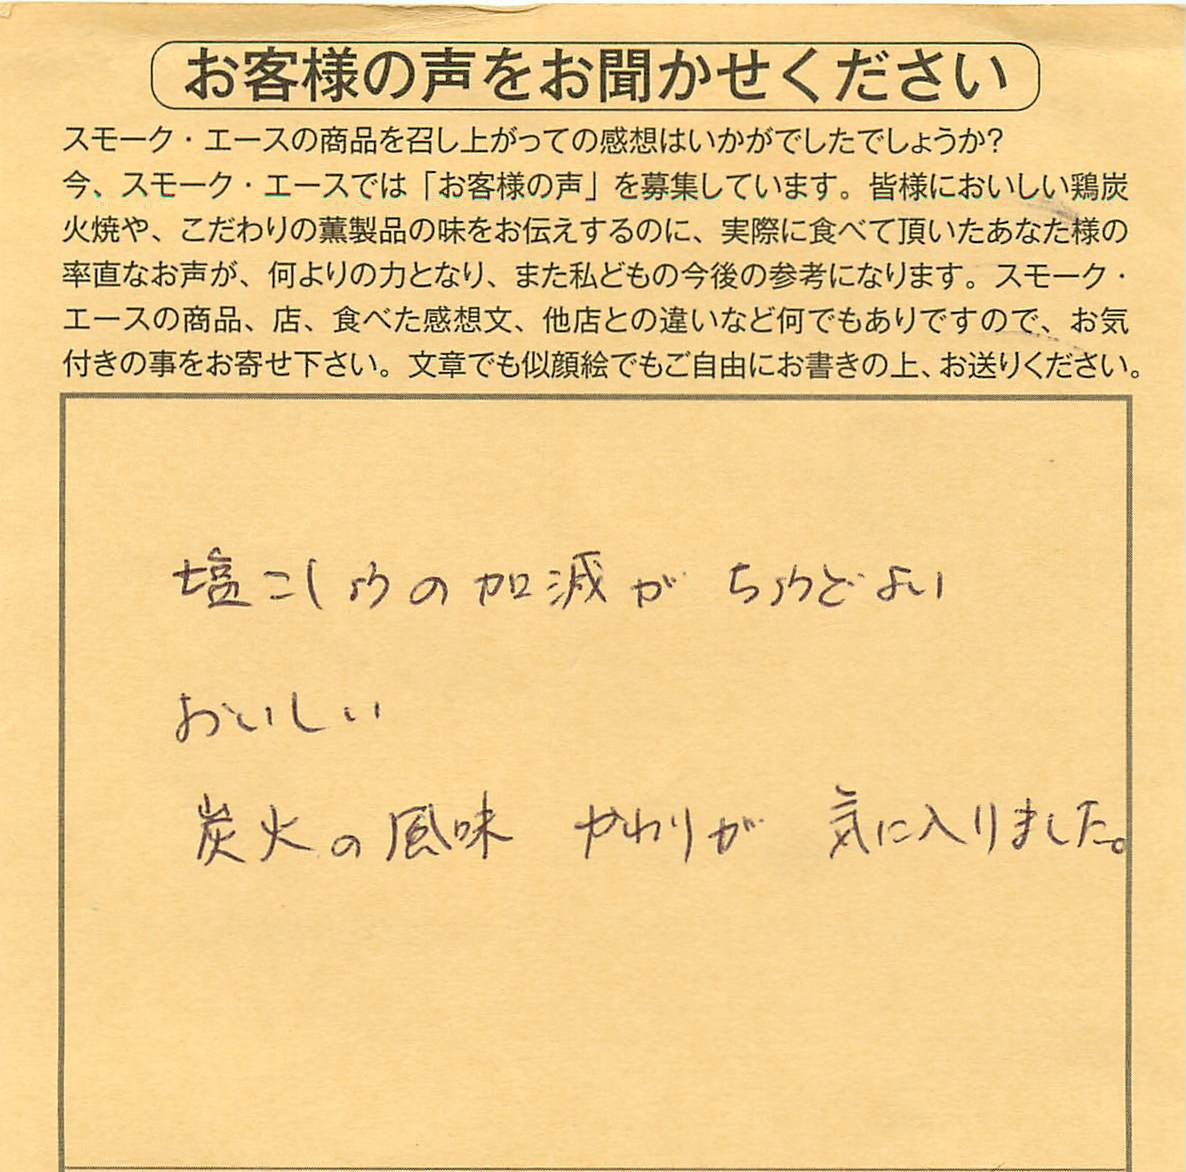 お客様の声をお聞かせください
スモーク・エースの商品を召し上がっての感想はいかがでしたでしょうか?
今、スモーク・エースでは「お客様の声」を募集しています。皆様においしい鶏炭
火焼や、こだわりの薫製品の味をお伝えするのに、実際に食べて頂いたあなた様の
率直なお声が、何よりの力となり、また私どもの今後の参考になります。スモーク・
エースの商品、店、食べた感想文、他店との違いなど何でもありですので、お気
付きの事をお寄せ下さい。文章でも似顔絵でもご自由にお書きの上、お送りください。
塩こしょうの加減が ちょうどよい
おいしい
炭火の風味 やわりが 気に入りました。